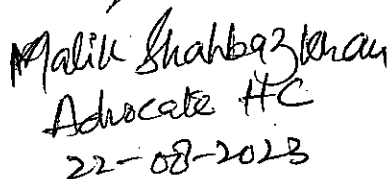 Malik Shahbaz Khan
Advocate HC
22-08-2023